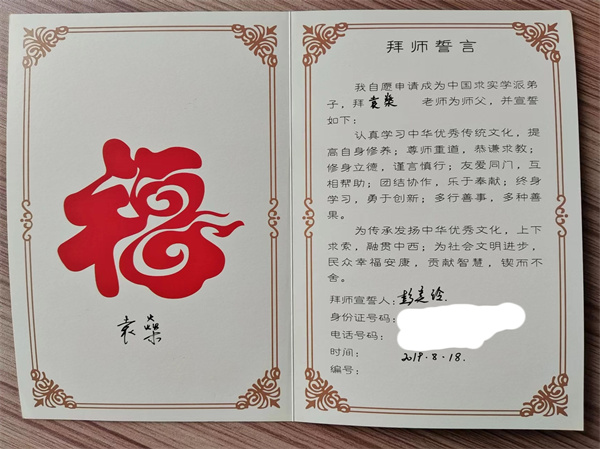 福
袁燊
拜师誓言
我自愿申请成为中国求实学派弟
子，拜袁燊 老师为师父，并宣誓
如下：
认真学习中华优秀传统文化，提
高自身修养；尊师重道，恭谦求教；
修身立德，谨言慎行；友爱同门，互
相帮助；团结协作，乐于奉献；终身
学习，勇于创新；多行善事，多种善
果。
为传承发扬中华优秀文化，上下
求索，融贯中西；为社会文明进步，
民众幸福安康，贡献智慧，锲而不
舍。
拜师宣誓人：
身份证号码：
电话号码：
时间： 2019.8.18.
编号：